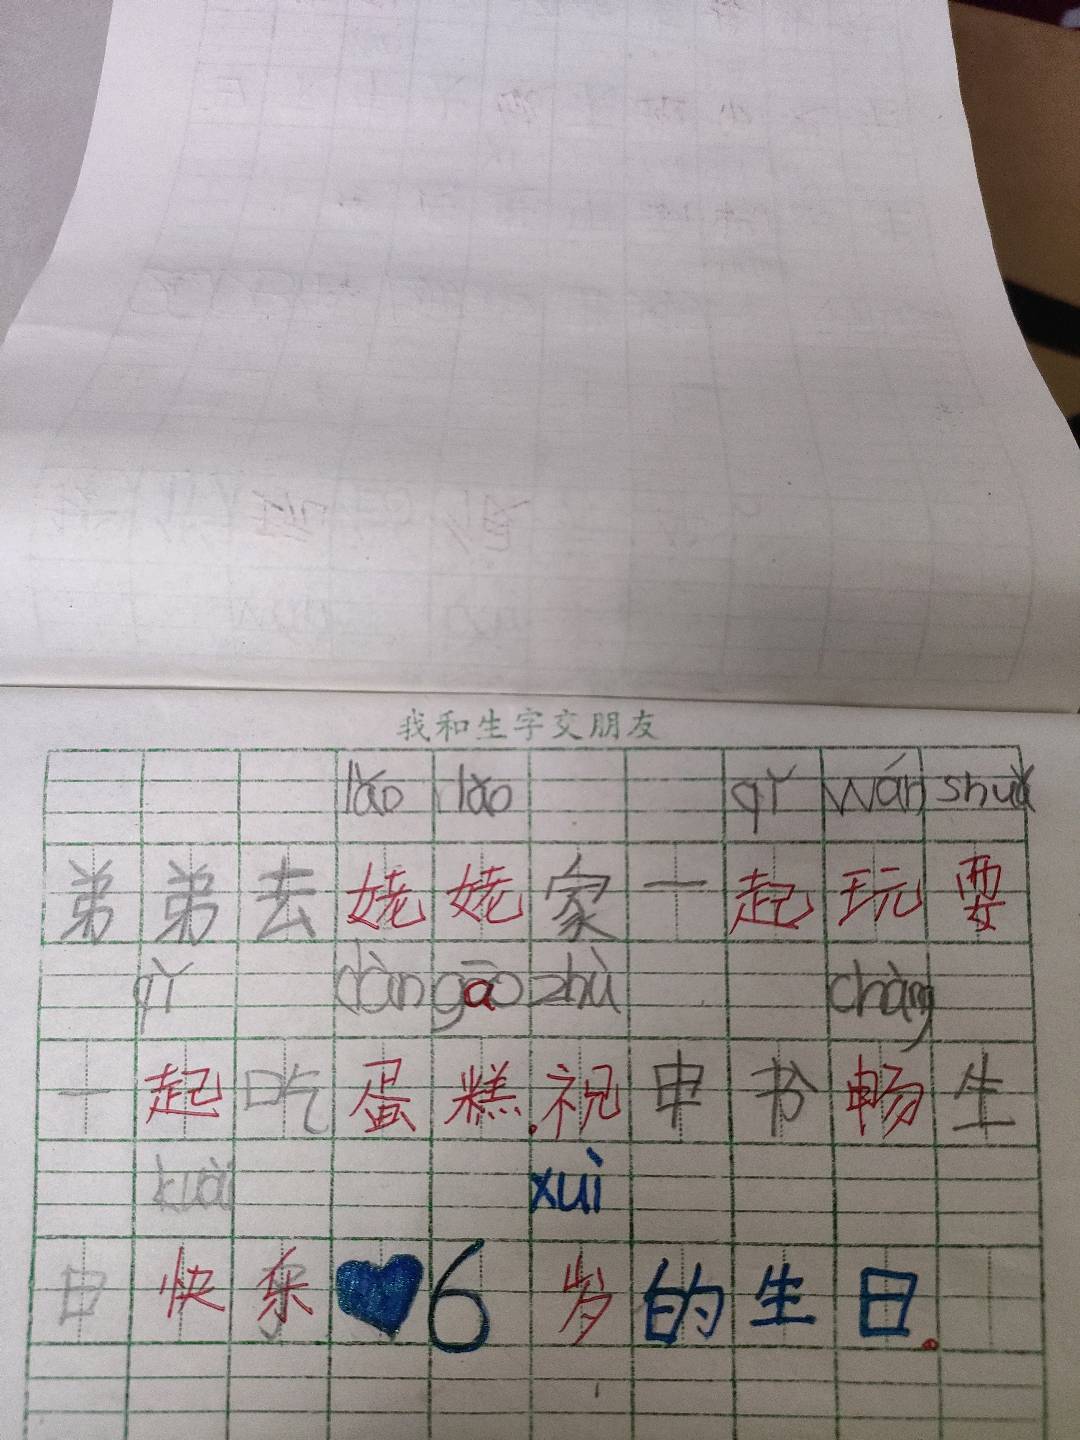 我和生字交朋友
lǎo lǎo qǐ wán shuǎ
弟弟去姥姥家一起玩耍
qǐ dàn gāo zhù chàng
一起吃蛋糕.祝申书畅生
kuài xuì
日快乐6岁的生日.